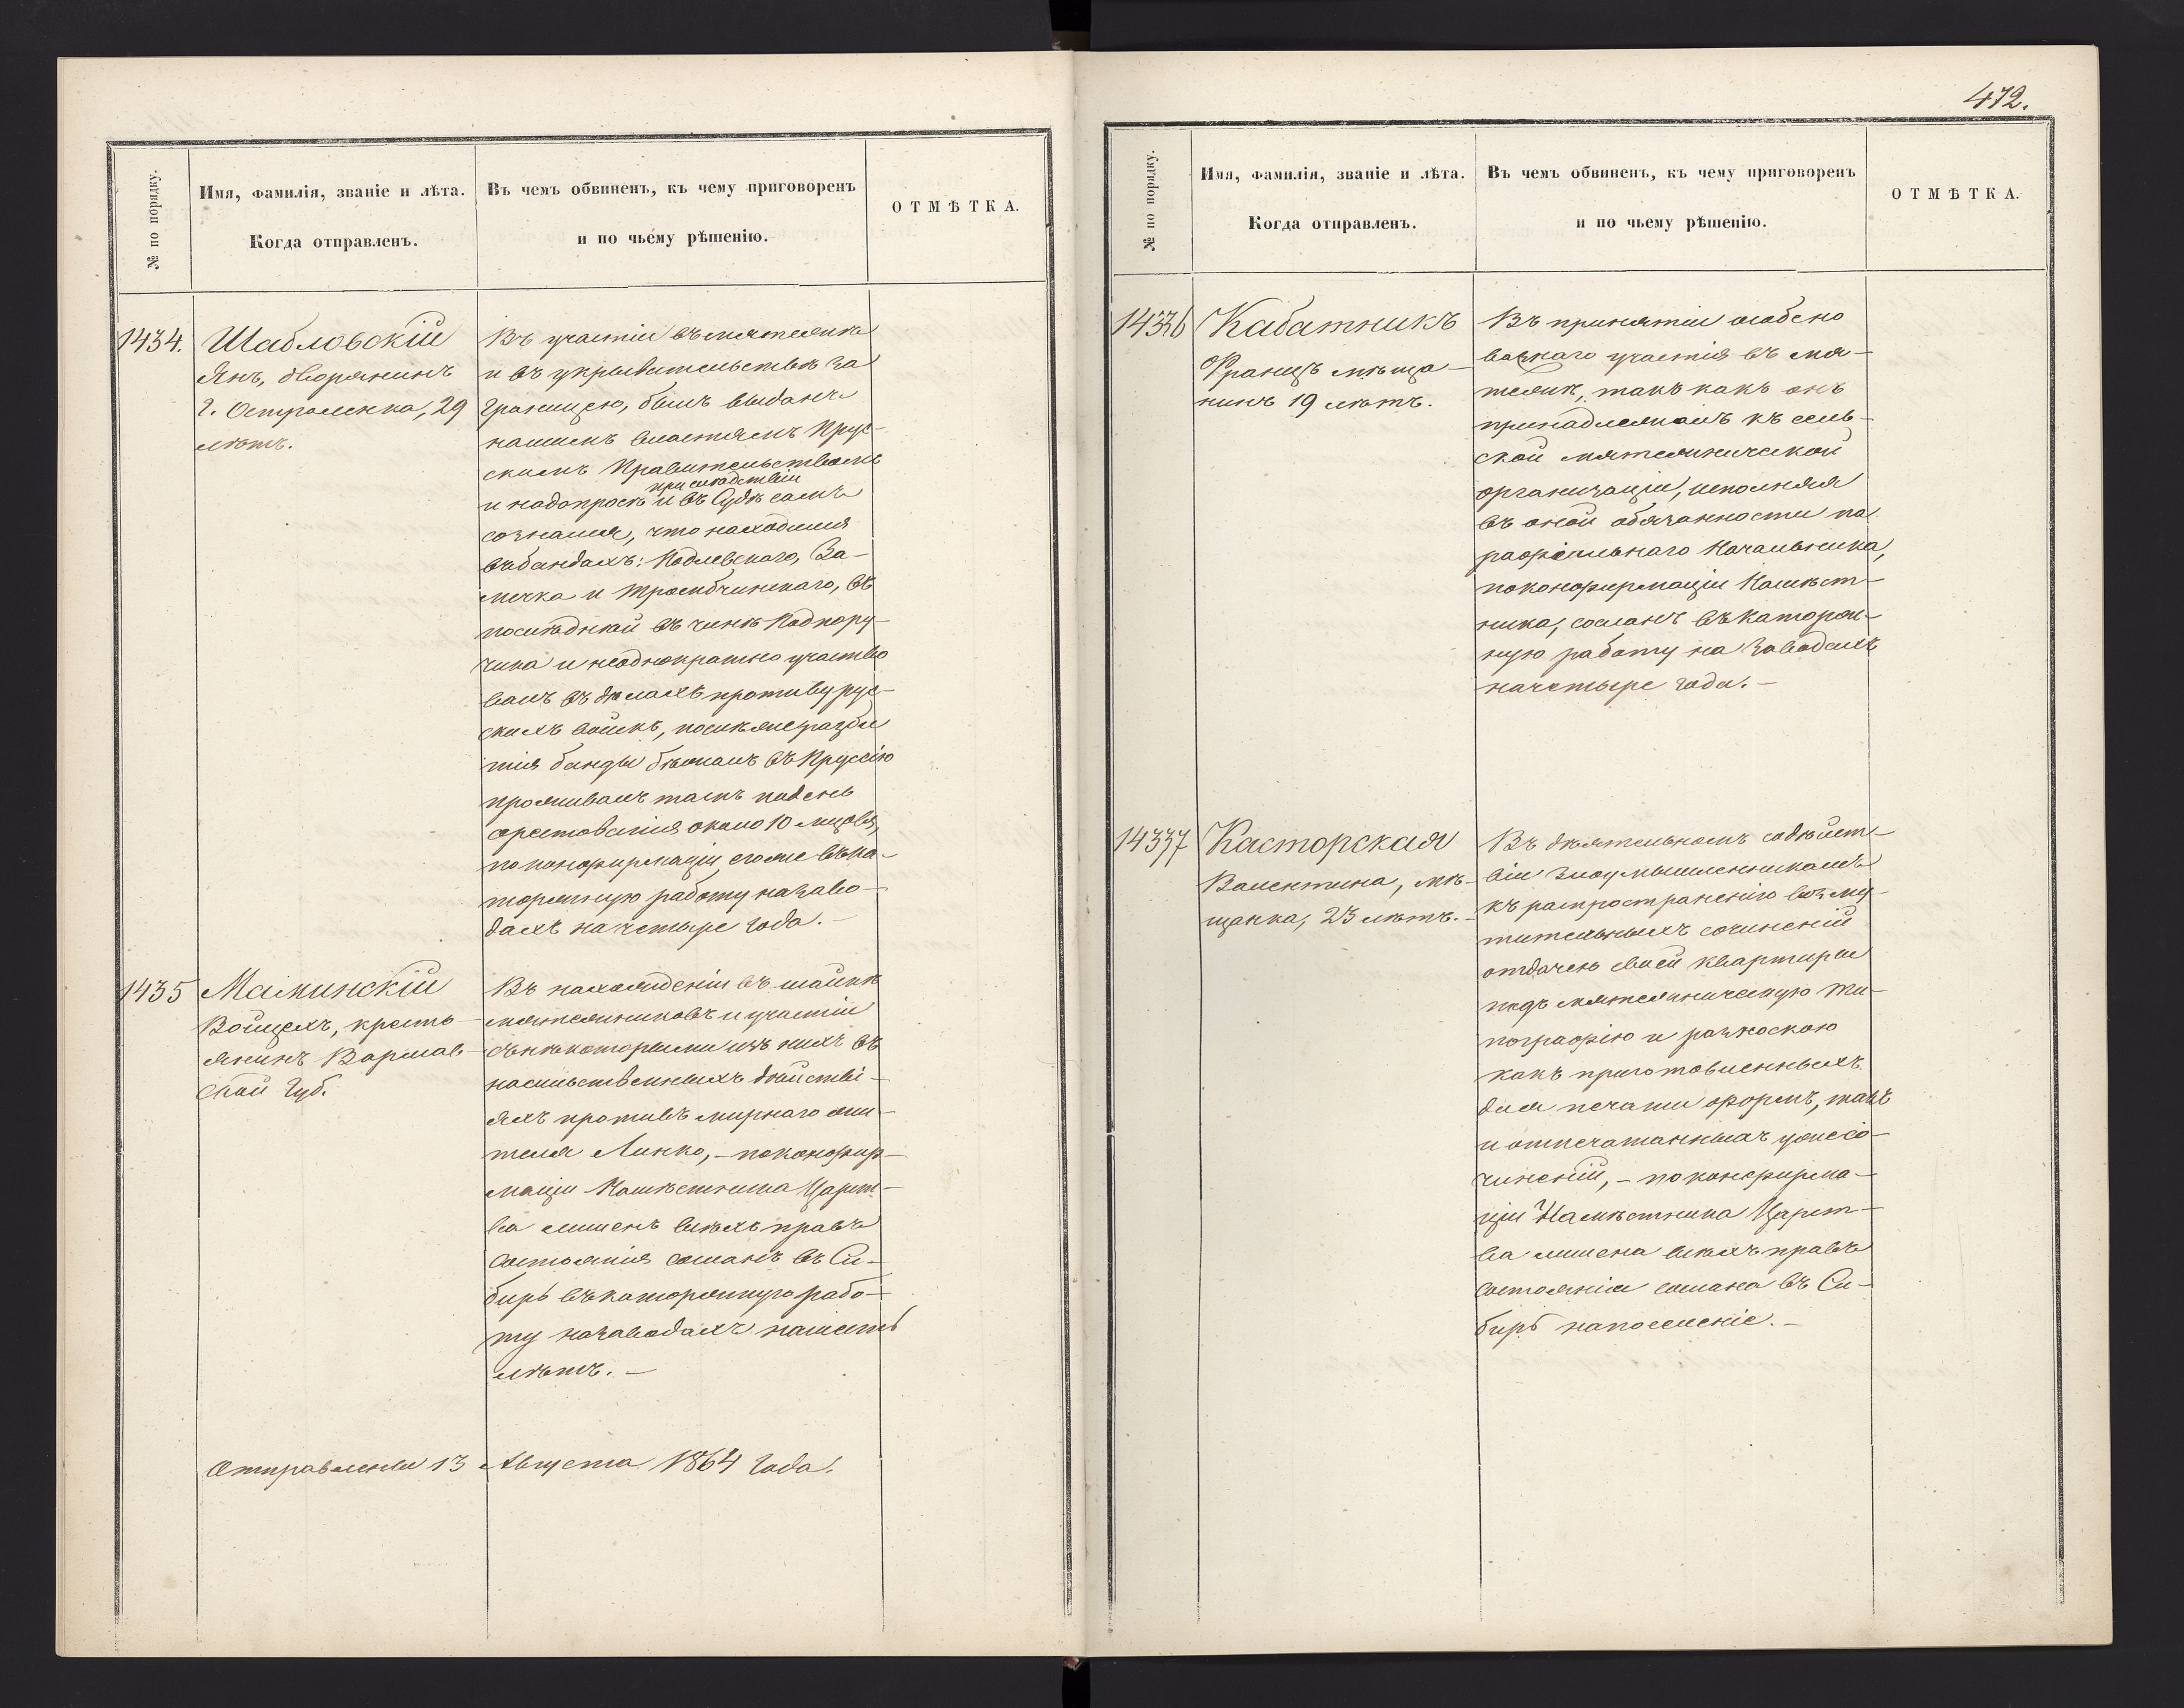 № по порядку.
Имя, фамилія, званіе и лѣта.
Когда отправленъ.
Въ чемъ обвиненъ, къ чему приговоренъ
и по чьему рѣшенію.
ОТМѢТКА.
1434.
Шабловскій
Янъ, дворянинъ
г. Остроленка, 29
лѣтъ.
Въ участіи въ мятежѣ
и въ укрывательствѣ за
границею, былъ выданъ
нашимъ властямъ Прус-
скимъ Правительствомъ
при слѣдствіи
и на допросѣ и въ Судѣ самъ
сознался, что находился
въ бандахъ: Подлевскаго, За-
мечка и Тромбчинскаго, въ
послѣдней въ чинѣ Подпору-
чика и неоднократно участво
валъ въ дѣлахъ противу рус-
скихъ войскъ, послѣ же разби
тія банды бѣжалъ въ Пруссію
проживалъ тамъ по день
арестованія около 10 мѣсяцевъ,
по конфирмаціи его же въ ка-
торжную работу на заво-
дахъ на четыре года. —
1435
Малминскій
Войцехъ, кресть-
янинъ Варшав-
ской Губ.
Въ нахожденіи въ шайкѣ
мятежниковъ и участіи
съ нѣкоторыми изъ нихъ въ
насильственныхъ дѣйстві-
яхъ противъ мирнаго жи-
теля Линко, — по конфир-
маціи Намѣстника Царст-
ва лишенъ всѣхъ правъ
состоянія сосланъ въ Си-
бирь въ каторжную рабо-
ту на заводахъ на шесть
лѣтъ. —
Отправлены 13 Августа 1864 года.
472.
№ по порядку.
Имя, фамилія, званіе и лѣта.
Когда отправленъ.
Въ чемъ обвиненъ, къ чему приговоренъ
и по чьему рѣшенію.
ОТМѢТКА.
1436
Кабатникъ
Францъ мѣща-
нинъ 19 лѣтъ.
Въ принятіи особено
важнаго участія въ мя-
тежѣ, такъ какъ онъ
принадлежалъ къ сель-
ской мятежнической
организаціи, исполняя
въ оной обязанности па
рафіяльнаго Начальника,
по конфирмаціи Намѣст-
ника, сосланъ въ каторж-
ную работу на заводахъ
на четыре года. —
1437
Касторская
Валентина, мѣ-
щанка, 23 лѣтъ. —
Въ дѣятельномъ содѣйст-
віи злоумышленникамъ
къ распространенію возму-
тительныхъ сочиненій
отдачею своей квартиры
подъ мятежническую Ти-
пографію и разноскою
какъ приготовленныхъ
для печати формъ, такъ
и отпечатанныхъ уже со-
чиненій, — по конфирма-
ціи Намѣстника Царст-
ва лишена всѣхъ правъ
состоянія сослана въ Си-
бирь на поселеніе. —